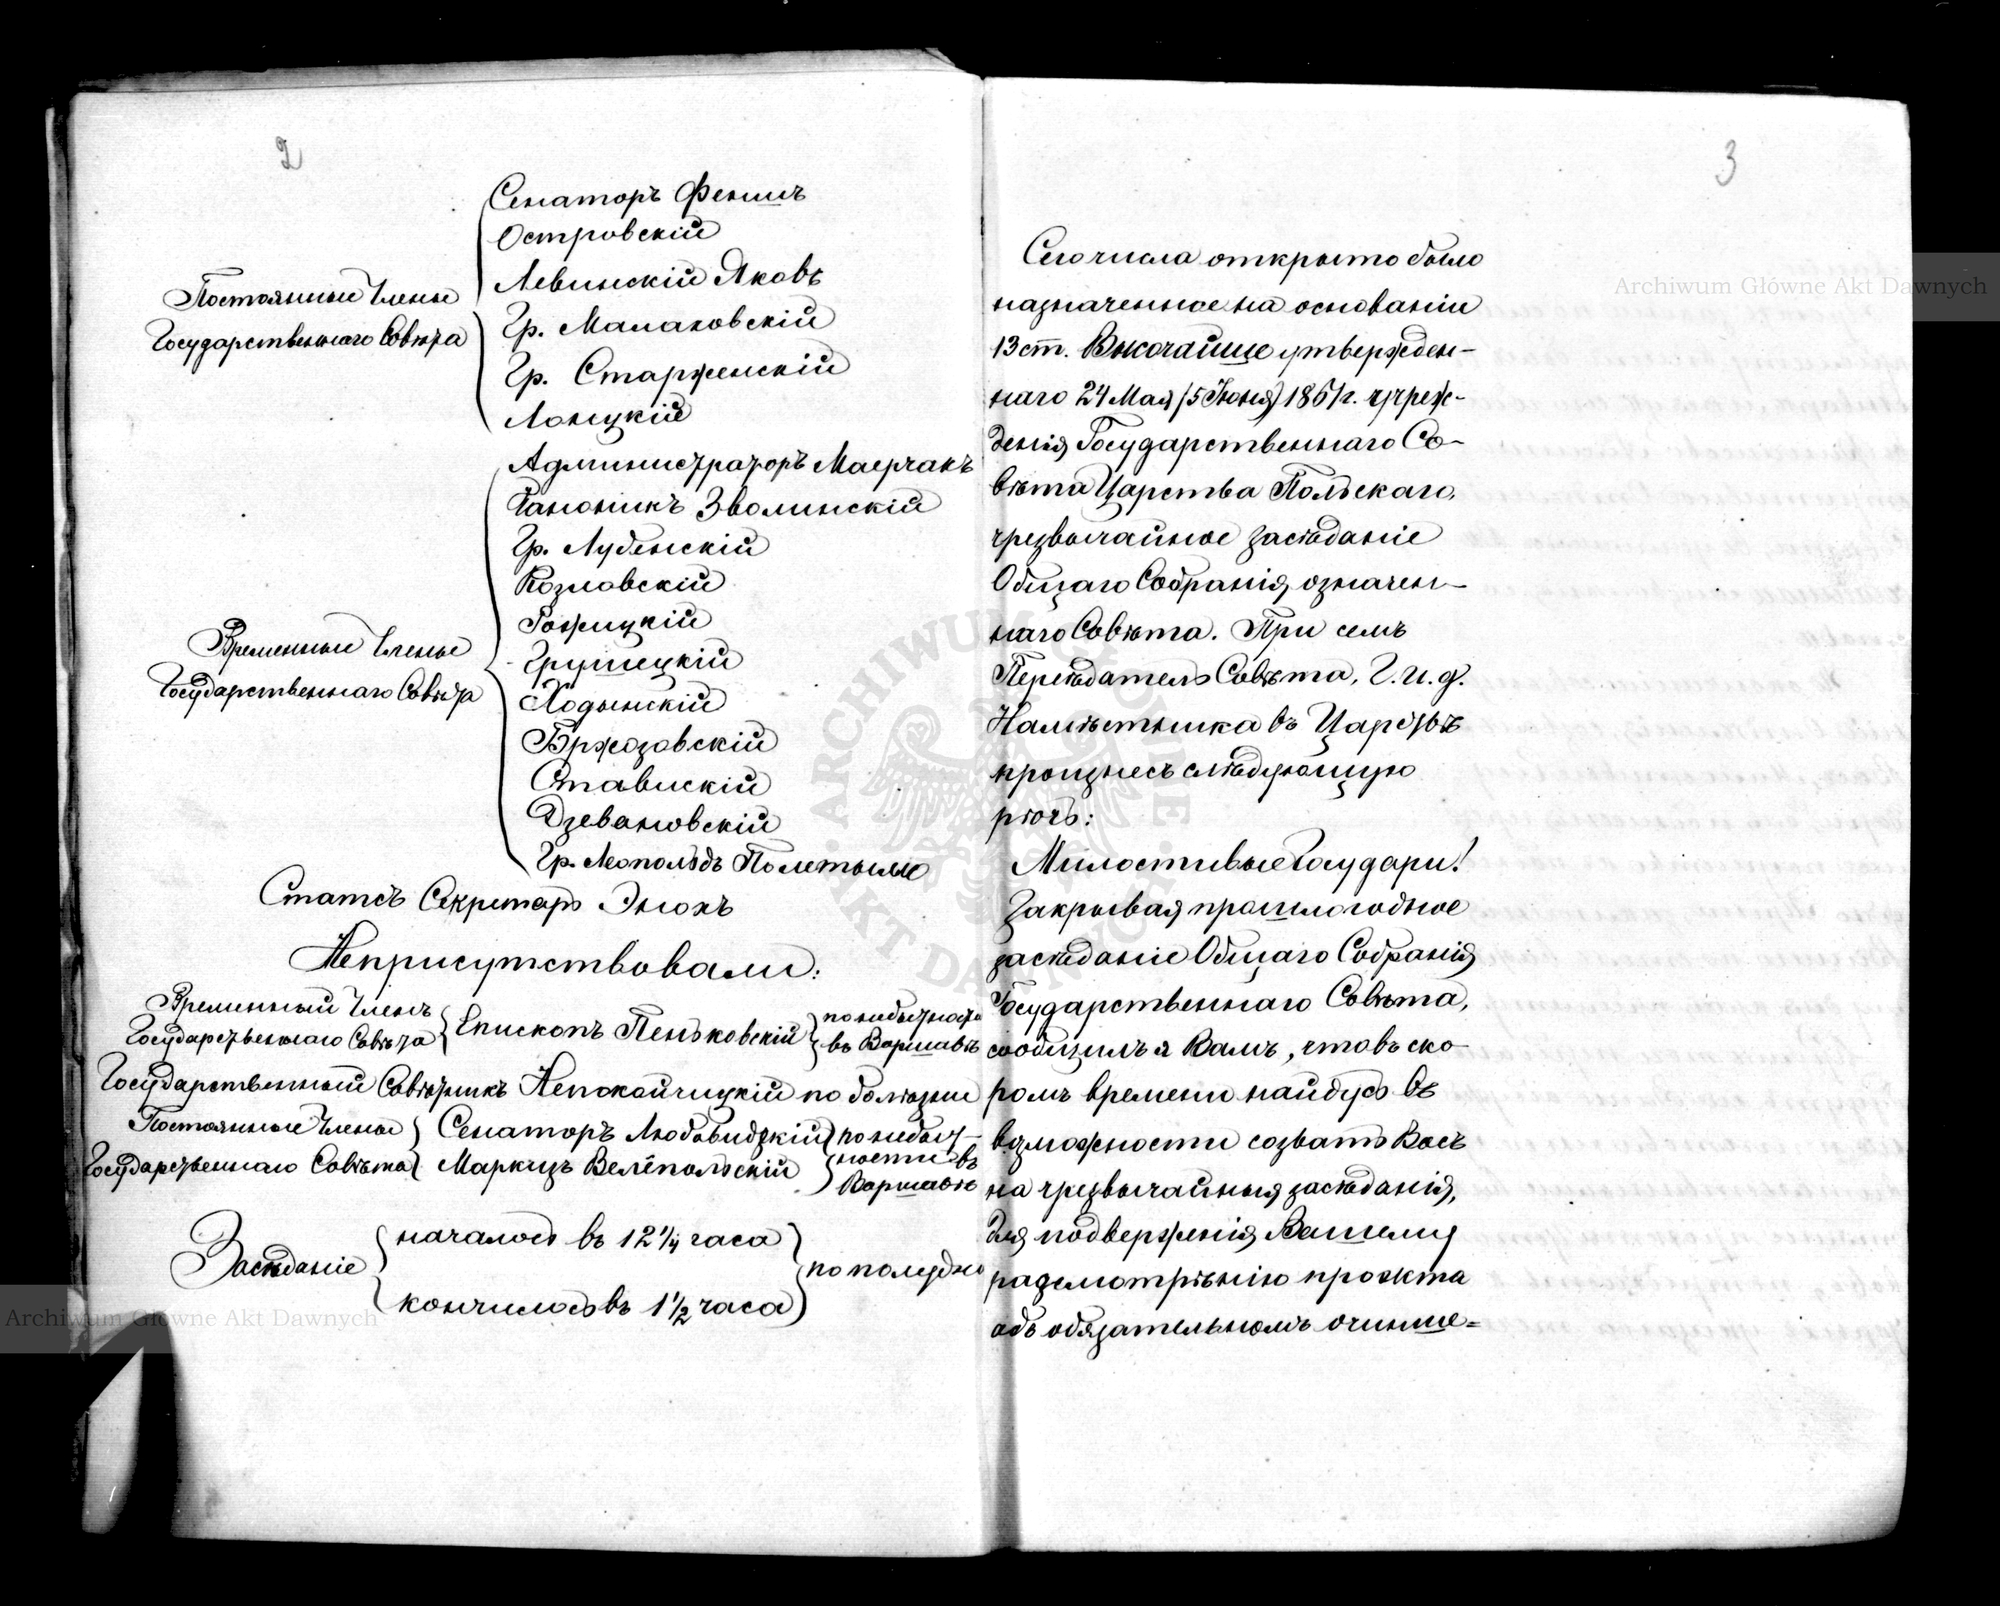 2
Постоянные Члены
Государственнаго Совѣта
Сенаторъ Феншъ
Островскій
Левинскій Яковъ
Гр. Малаховскій
Гр. Старженскій
Лонцкій
Временные Члены
Государственнаго Совѣта
Администраторъ Маерчакъ
Каноникъ Зволинскій
Гр. Лубенскій
Козловскій
Гожицкій
Грушецкій
Ходынскій
Бржозовскій
Ставискій
Дзевановскій
Гр. Леопольдъ Полетылло
Статсъ Секретарь Энохъ
Неприсутствовали:
Временный Членъ
Государственнаго Совѣта
Епископъ Пеньковскій
по небытности
въ Варшавѣ
Государственный Совѣтникъ Непокойчицкій по болѣзни
Постоянные Члены
Государственнаго Совѣта
Сенаторъ Любовидзкій
Маркизъ Велёпольскій
по небыт-
ности въ
Варшавѣ
Засѣданіе
началось въ 12 1/4 часа
кончилось въ 1 1/2 часа
по полудни
3
Сего числа открыто было
назначенное на основаніи
13 ст. Высочайше утвержден-
наго 24 Мая (5 Іюня) 1861 г. учреж-
денія Государственнаго Со-
вѣта Царства Польскаго,
чрезвычайное засѣданіе
Общаго Собранія, означен-
наго Совѣта. При семъ
Персѣдатель Совѣта, Г. И. д.
Намѣстника въ Царствѣ
произнесъ слѣдующую
рѣчь:
Милостивые Государи!
Закрывая прошлогоднее
засѣданіе Общаго Собранія
Государственнаго Совѣта,
сообщилъ я Вамъ, что въ ско-
ромъ времени найдусь въ
возможности созвать Васъ
на чрезвычайныя засѣданія,
для подверженія Вашему
разсмотрѣнію проэкта
объ обязательномъ очинше=
Archiwum Główne Akt Dawnych
Archiwum Główne Akt Dawnych
ARCHIWUM GŁÓWNE AKT DAWNYCH